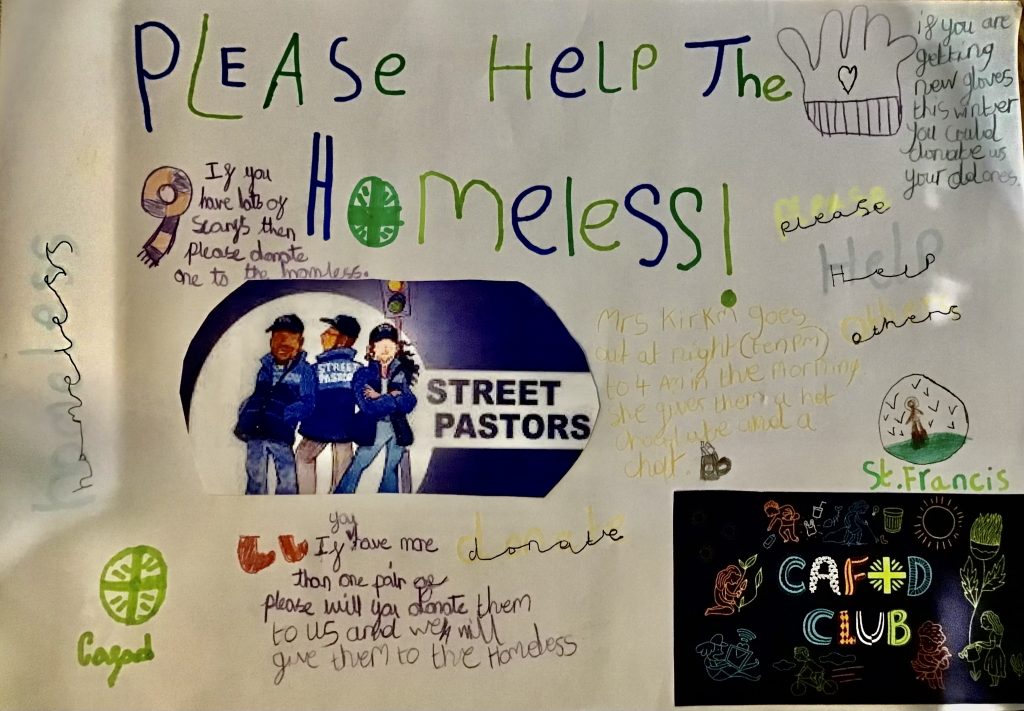 PLEASe HeLP The
HOmeless!
if you are
getting
new gloves
this winter
you could
donate us
your old ones.
If you
have lots of
scarfs then
please donate
one to the homless.
please
please
Help
Help
others
others
homeless
homeless
STREET
PASTORS
STREET
PASTORS
Mrs Kirkm goes
out at night (tenpm)
to 4 Am in the morning.
she gives them a hot
and a
chat.
St.Francis
you
If have more
than one pair of
please will you donate them
to us and we will
give them to the Homeless
donate
donate
Cafod
CAFOD
CLUB